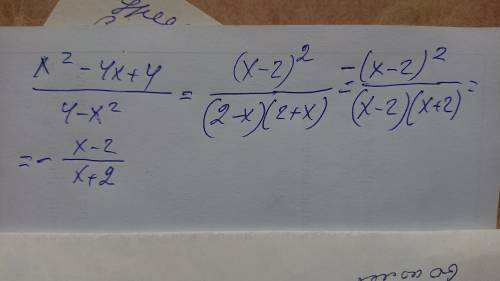 (x² - 4x + 4)/(4 - x²) = (x-2)²/((2-x)(2+x)) = -(x-2)²/((x-2)(x+2)) =
= - (x-2)/(x+2)